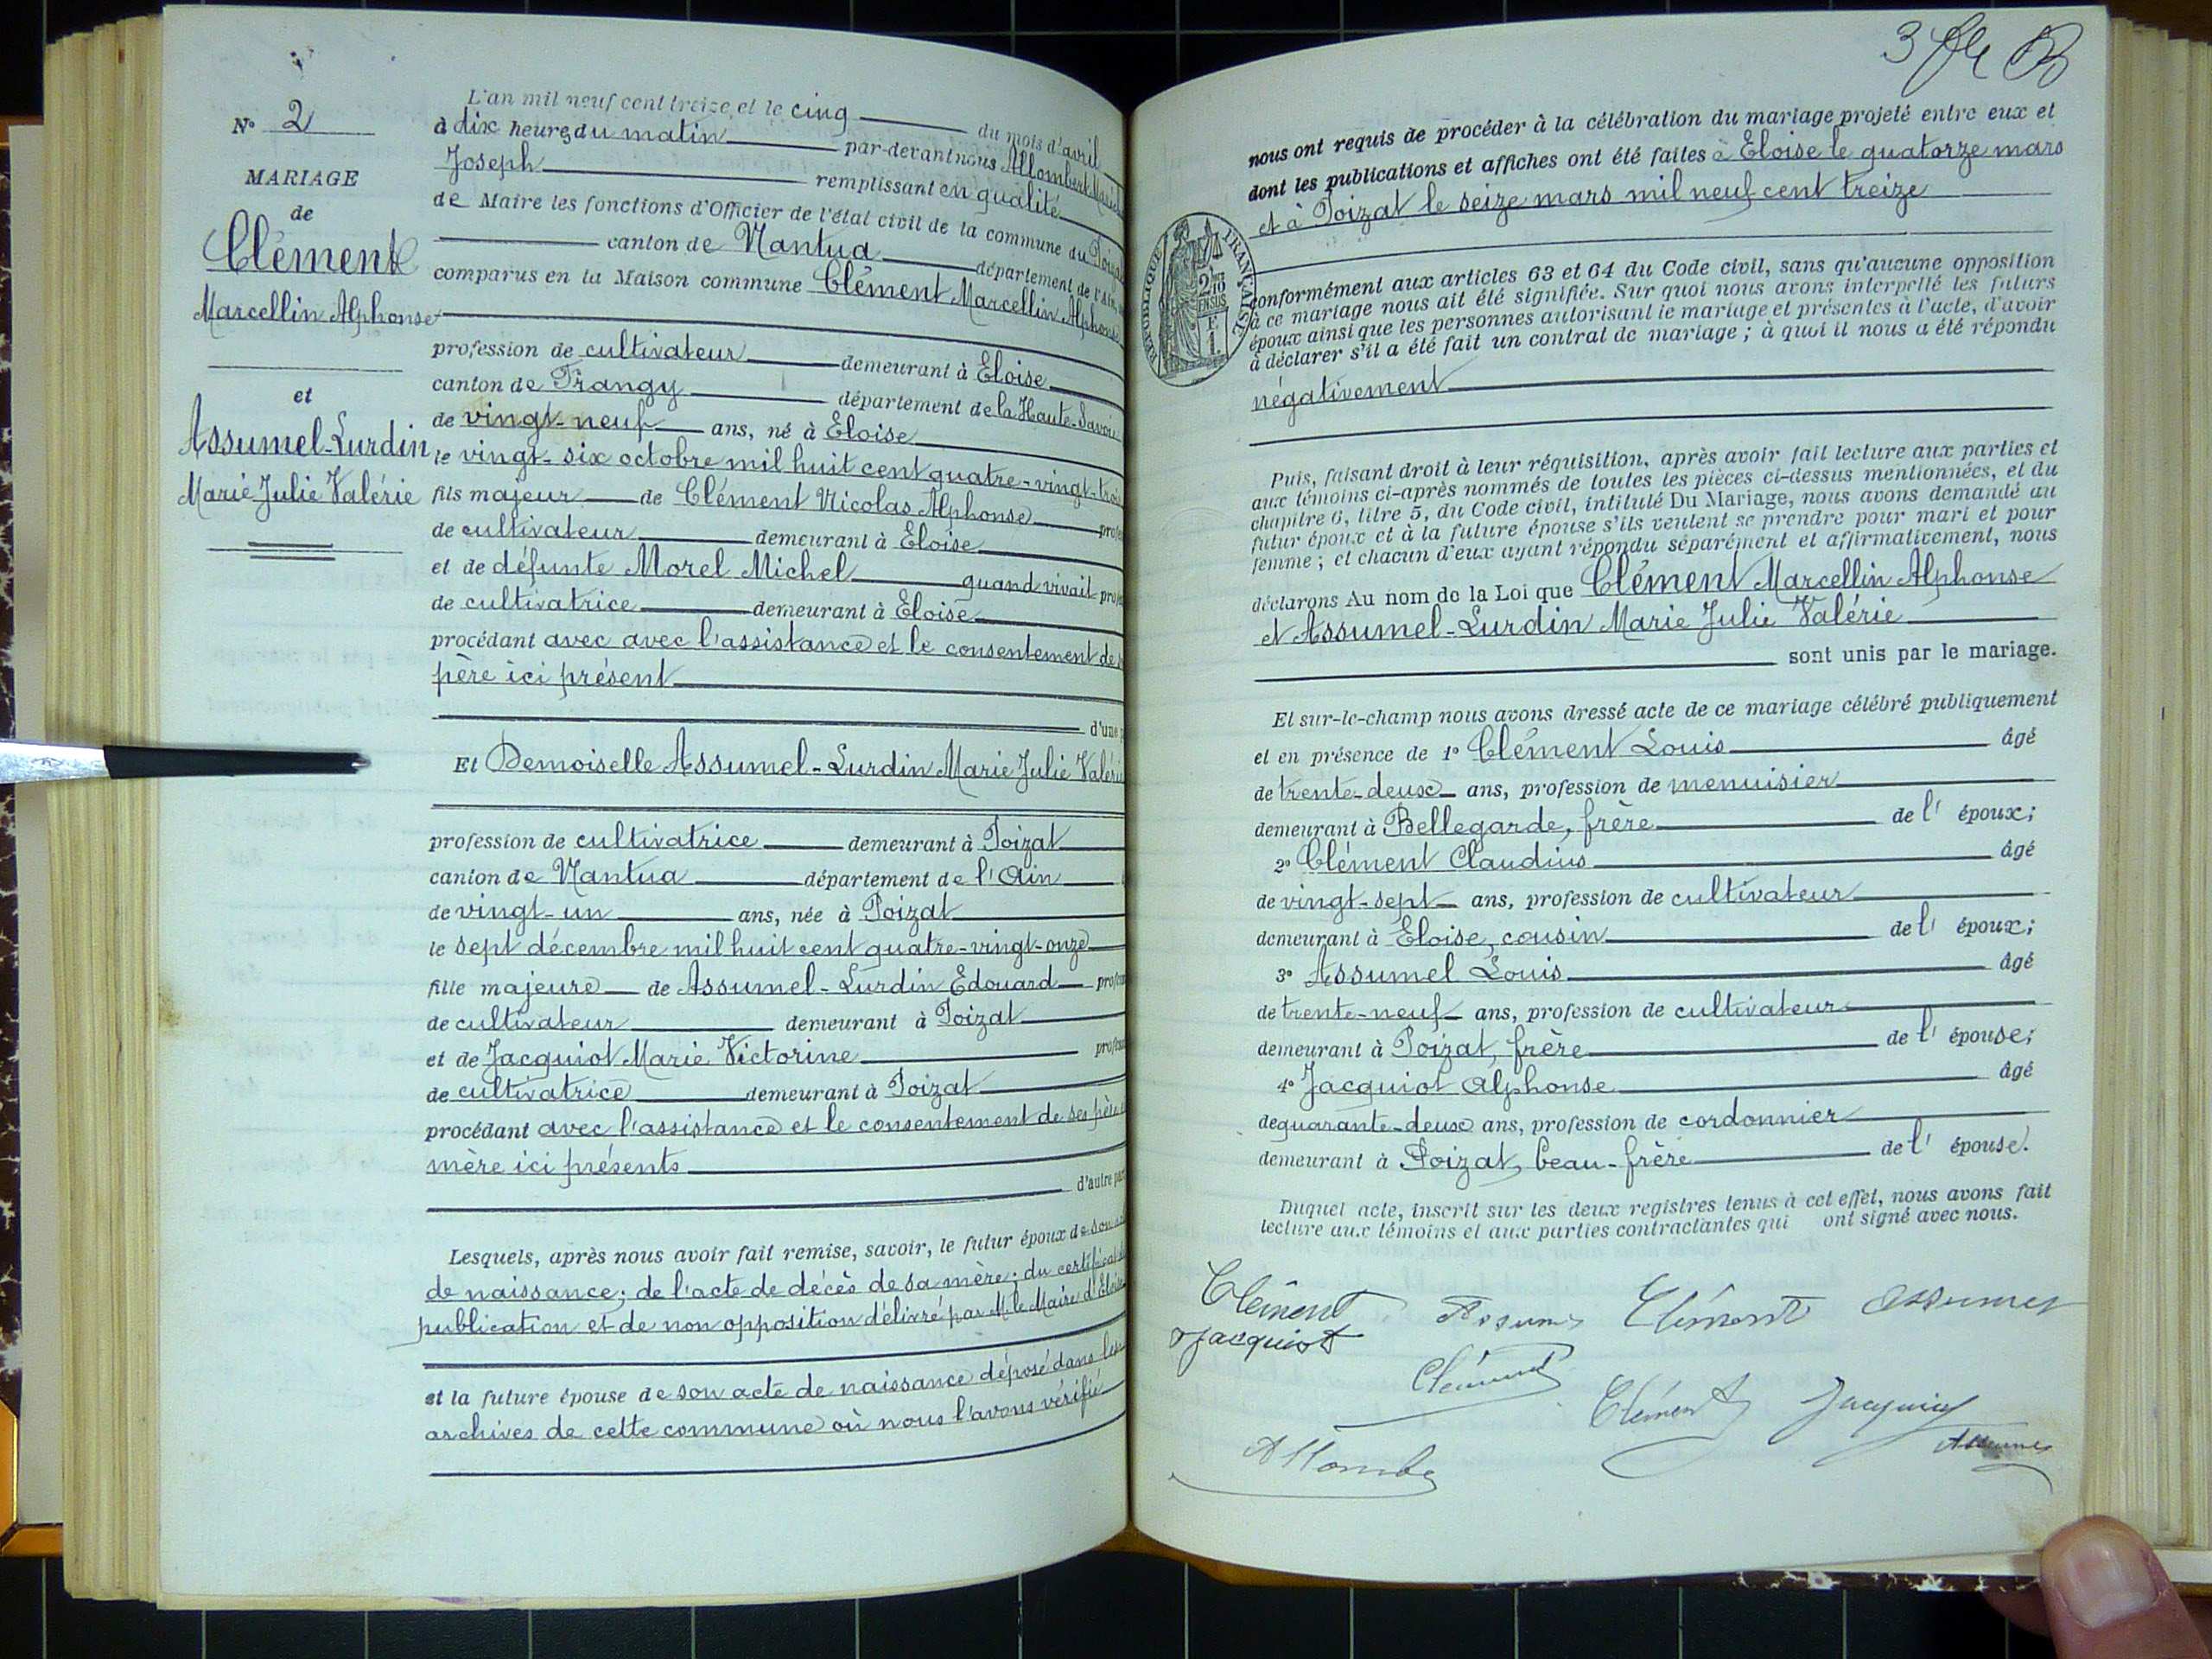 N° 2
MARIAGE
de
Clément
Marcellin Alphonse
et
Assumel-Lurdin
Marie Julie Valérie
L'an mil neuf cent treize et le cinq du mois d'avril
à dix heures du matin par-devant nous Allombert
Joseph remplissant en qualité
de Maire les fonctions d'Officier de l'état civil de la commune du
canton de Nantua département de l'Ain,
comparus en la Maison commune Clément Marcellin Alphonse
profession de cultivateur demeurant à Eloise
canton de Frangy département de la Haute-Savoie
de vingt-neuf ans, né à Eloise
le vingt-six octobre mil huit cent quatre-vingt-trois
fils majeur de Clément Nicolas Alphonse
de cultivateur demeurant à Eloise
et de défunte Morel Michel quand vivait
de cultivatrice demeurant à Eloise
procédant avec avec l'assistance et le consentement de
père ici présent
d'une
Et Demoiselle Assumel-Lurdin Marie Julie Valérie
profession de cultivatrice demeurant à Poizat
canton de Nantua département de l'Ain
de vingt-un ans, née à Poizat
le sept décembre mil huit cent quatre-vingt-onze
fille majeure de Assumel-Lurdin Edouard
de cultivateur demeurant à Poizat
et de Jacquiot Marie Victorine
de cultivatrice demeurant à Poizat
procédant avec l'assistance et le consentement de ses père
mère ici présents
d'autre
Lesquels, après nous avoir fait remise, savoir, le futur époux de son
de naissance; de l'acte de décès de sa mère; du certificat
publication et de non opposition délivré par M. le Maire d'Eloise
et la future épouse de son acte de naissance déposé dans les
archives de cette commune où nous l'avons vérifié
3
nous ont requis de procéder à la célébration du mariage projeté entre eux et
dont les publications et affiches ont été faites à Eloise le quatorze mars
et à Poizat le seize mars mil neuf cent treize
RÉPUBLIQUE FRANÇAISE
2/10 EN SUS
F.
1.
conformément aux articles 63 et 64 du Code civil, sans qu'aucune opposition
à ce mariage nous ait été signifiée. Sur quoi nous avons interpellé les futurs
époux ainsi que les personnes autorisant le mariage et présentes à l'acte, d'avoir
à déclarer s'il a été fait un contrat de mariage ; à quoi il nous a été répondu
négativement
Puis, faisant droit à leur réquisition, après avoir fait lecture aux parties et
aux témoins ci-après nommés de toutes les pièces ci-dessus mentionnées, et du
chapitre 6, titre 5, du Code civil, intitulé Du Mariage, nous avons demandé au
futur époux et à la future épouse s'ils veulent se prendre pour mari et pour
femme ; et chacun d'eux ayant répondu séparément et affirmativement, nous
déclarons Au nom de la Loi que Clément Marcellin Alphonse
et Assumel-Lurdin Marie Julie Valérie
sont unis par le mariage.
Et sur-le-champ nous avons dressé acte de ce mariage célébré publiquement
et en présence de 1° Clément Louis âgé
de trente-deux ans, profession de menuisier
demeurant à Bellegarde, frère de l' époux;
2° Clément Claudius âgé
de vingt-sept ans, profession de cultivateur
demeurant à Eloise, cousin de l' époux;
3° Assumel Louis âgé
de trente-neuf ans, profession de cultivateur
demeurant à Poizat, frère de l' épouse;
4° Jacquiot Alphonse âgé
de quarante-deux ans, profession de cordonnier
demeurant à Poizat, beau-frère de l' épouse.
Duquel acte, inscrit sur les deux registres tenus à cet effet, nous avons fait
lecture aux témoins et aux parties contractantes qui ont signé avec nous.
Clément Clément Assumel
Jacquiot
Clément
Clément Jacquiot